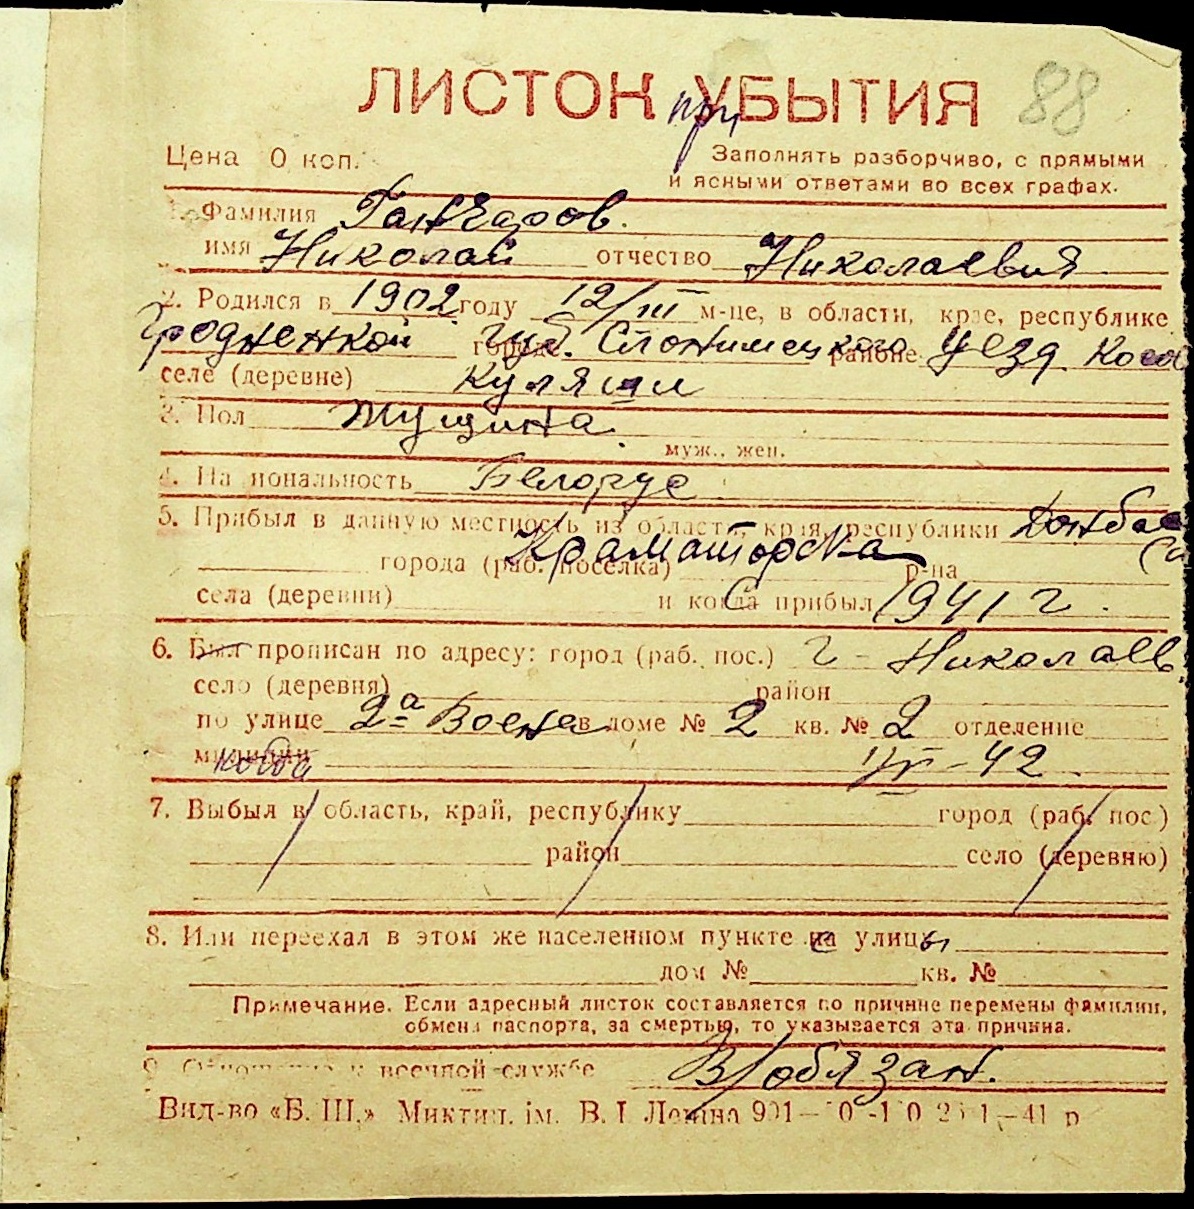 ЛИСТОК при УБЫТИЯ 88
Цена 0 коп. Заполнять разборчиво, с прямыми
и ясными ответами во всех графах.
1. Фамилия Ганчаров.
имя Николай отчество Николаевич
2. Родился в 1902 году 12/III м-це, в области, крае, республике
Гродненкой губ. городе Слонимецкого районе Уезд. Косов
селе (деревне) Куляши
3. Пол мущина
муж., жен.
4. На иональность Белорус
5. Прибыл в данную местность из области, края, республики Донбас
города (раб. поселка) Краматорска р-на
села (деревни) и когда прибыл 1941 г.
6. Был прописан по адресу: город (раб. пос.) г - Николаев.
село (деревня) район
по улице 2а Воена в доме № 2 кв. № 2 отделение
милиции когда -42
7. Выбыл в область, край, республику город (раб. пос.)
район село (деревню)
8. Или переехал в этом же населенном пункте с улицы
дом № кв. №
Примечание. Если адресный листок составляется по причине перемены фамилии,
обмена паспорта, за смертью, то указывается эта причина.
9. Отношение к военной службе В/обязан.
Вид-во «Б. Ш.» Миктип. ім. В. І Леніна